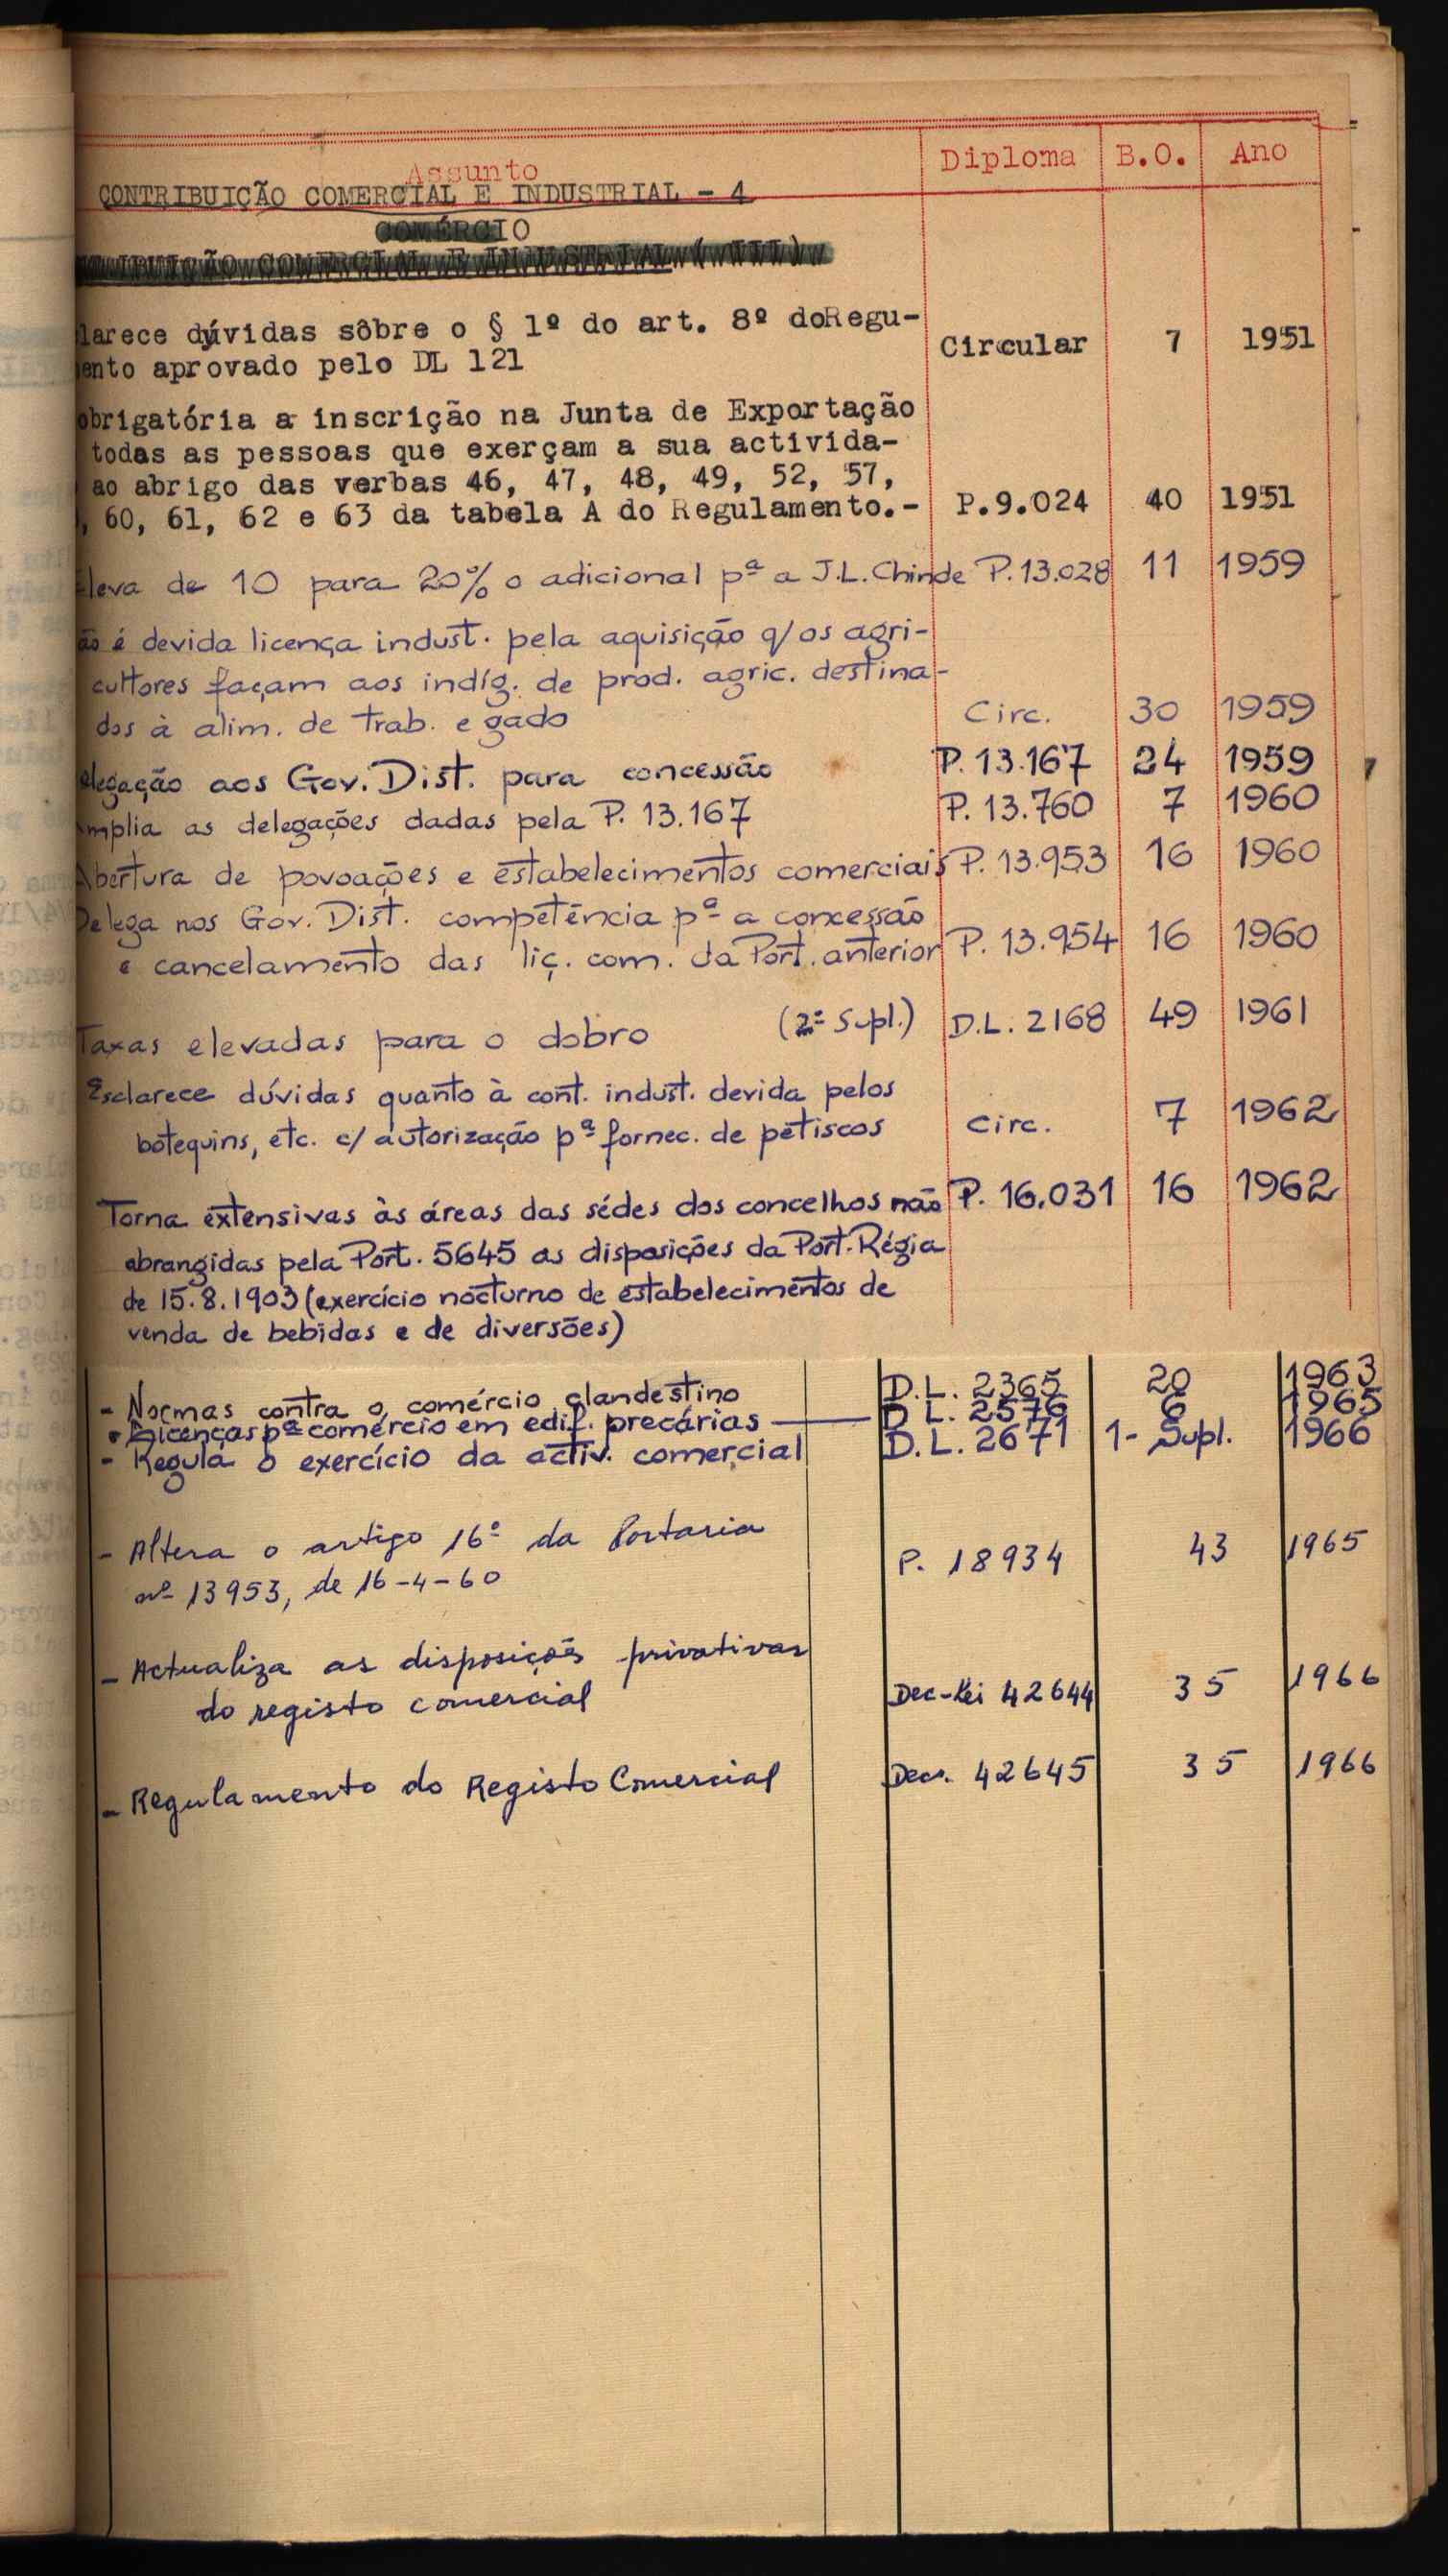 Assunto Diploma B.O. Ano
CONTRIBUIÇÃO COMERCIAL E INDUSTRIAL - 4
COMÉRCIO
larece dúvidas sôbre o § 1º do art. 8º doRegu-
ento aprovado pelo DL 121 Circular 7 1951
obrigatória a inscrição na Junta de Exportação
todas as pessoas que exerçam a sua activida-
ao abrigo das verbas 46, 47, 48, 49, 52, 57,
, 60, 61, 62 e 63 da tabela A do Regulamento.- P.9.024 40 1951
Eleva de 10 para 20% o adicional pª a J.L. Chinde P. 13.028 11 1959
ão é devida licença indust. pela aquisição q/ os agri-
cultores façam aos indíg. de prod. agric. destina-
dos à alim. de trab. e gado Circ. 30 1959
elegação aos Gov. Dist. para concessão P. 13.167 24 1959
Amplia as delegações dadas pela P. 13.167 P. 13.760 7 1960
Abertura de povoações e estabelecimentos comerciais P. 13.953 16 1960
Delega nos Gov. Dist. competência pª a concessão
e cancelamento das liç. com. da Port. anterior P. 13.954 16 1960
Taxas elevadas para o dobro (2º Supl.) D.L. 2168 49 1961
Esclarece dúvidas quanto à cont. indust. devida pelos
botequins, etc. c/ autorização pª fornec. de petiscos Circ. 7 1962
Torna extensivas às áreas das sédes dos concelhos não P. 16.031 16 1962
abrangidas pela Port. 5645 as disposições da Port. Régia
de 15.8.1903 (exercício nocturno de estabelecimentos de
venda de bebidas e de diversões)
- Normas contra o comércio clandestino D.L. 2365 20 1963
- Licenças pª comércio em edif. precárias D.L. 2576 6 1965
- Regula o exercício da activ. comercial D.L. 2671 1- Supl. 1966
- Altera o artigo 16º da Portaria
nº 13953, de 16-4-60 P. 18934 43 1965
- Actualiza as disposições privativas
do registo comercial Dec-Lei 42644 35 1966
- Regulamento do Registo Comercial Decr. 42645 35 1966